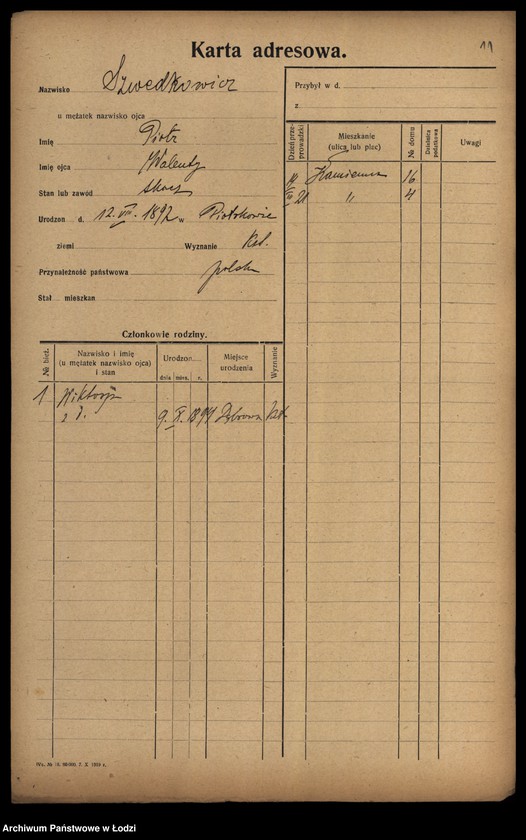 Karta adresowa.
11
Nazwisko Szwedkowicz
u mężatek nazwisko ojca
Imię Piotr
Imię ojca Walenty
Stan lub zawód
Urodzon d. 12. VII. 1892 w Piotrkowie
ziemi Wyznanie Kat.
Przynależność państwowa polska
Stał mieszkan
Członkowie rodziny.
№ bież.
Nazwisko i imię
(u mężatek nazwisko ojca)
i stan
Urodzon
dnia mies. r.
Miejsce
urodzenia
Wyznanie
1 Wiktorja
z d. 9. X. Kat.
Przybył w d.
z
Dzień przeprowadzki
Mieszkanie
(ulica lub plac)
№ domu
Dzielnica podatkowa
Uwagi
16
21 " 4
7. X. 1920 r.
Archiwum Państwowe w Łodzi